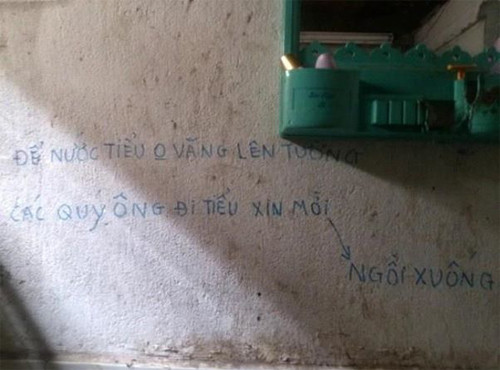 ĐỂ NƯỚC TIỂU O VĂNG LÊN TƯỜNG
CÁC QUÝ ÔNG ĐI TIỂU XIN MỜI
NGỒI XUỐNG